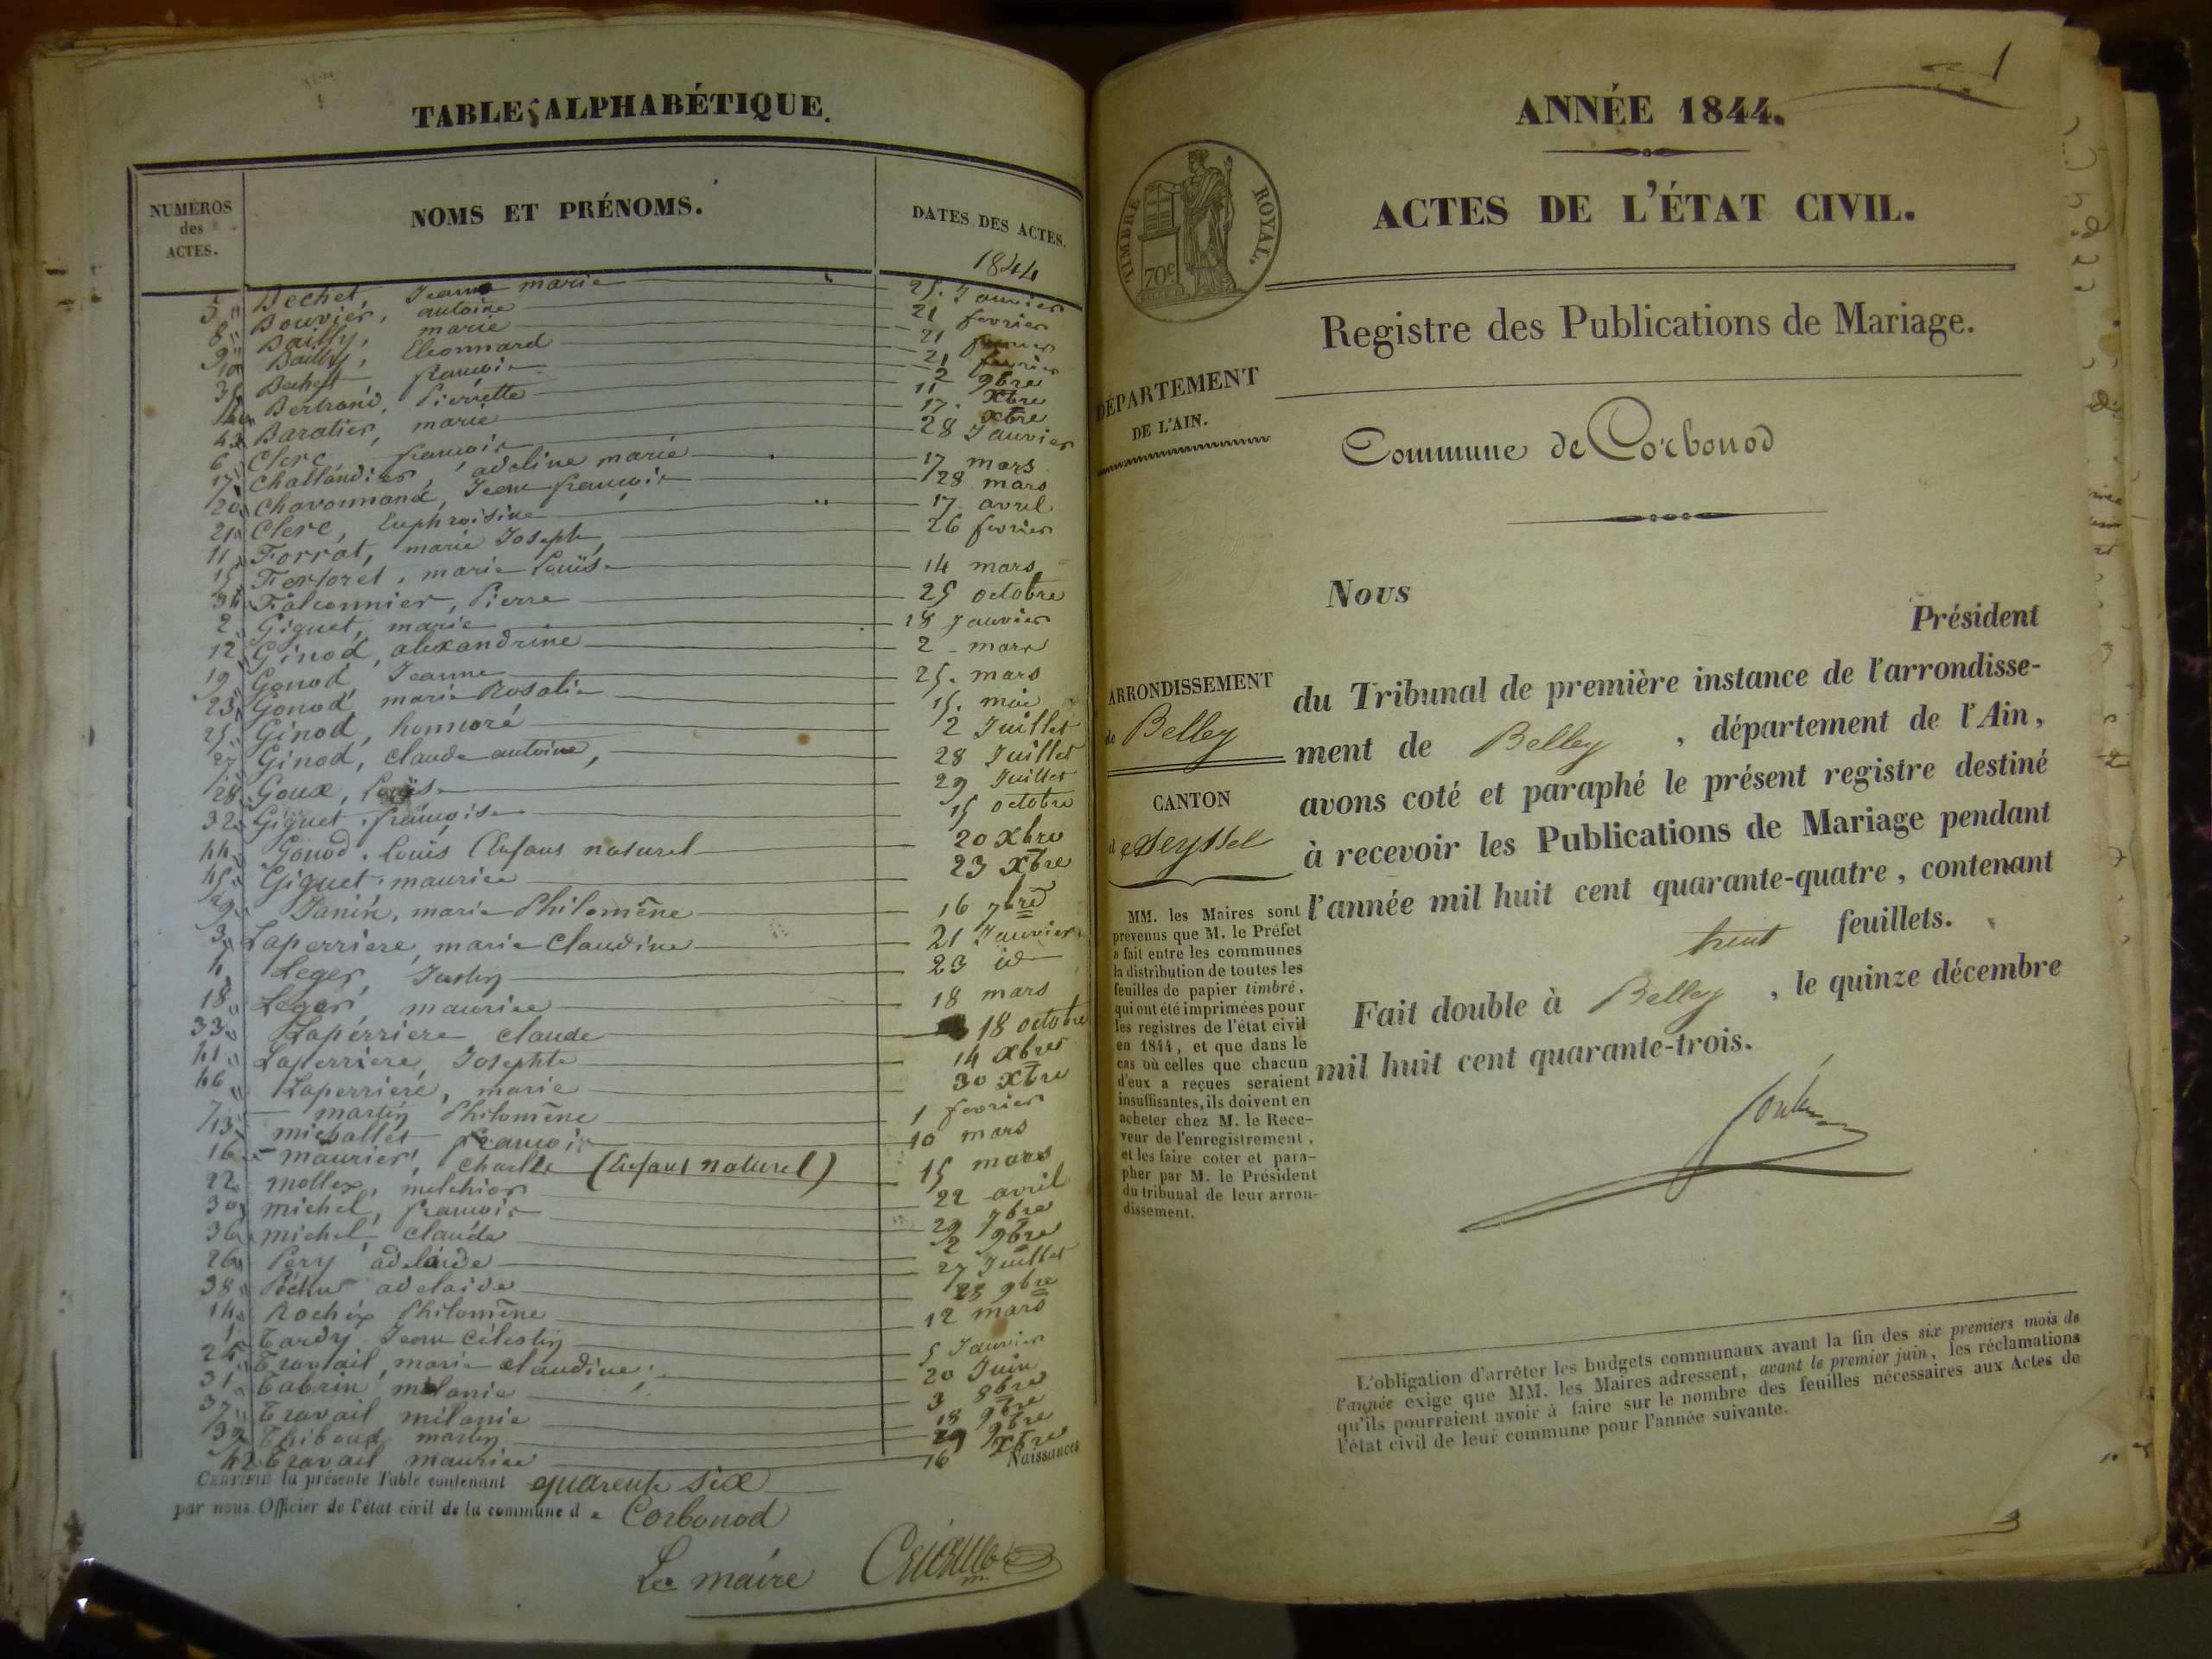 TABLES ALPHABÉTIQUE.
NUMÉROS
des
ACTES.
NOMS ET PRÉNOMS.
DATES DES ACTES.
1844
5 Bechet, Jeanne marie 25. Janvier
8 Bouvier, antoine 21 fevrier
9 Bailly, marie 21 fevrier
10 Bailly, Eleonnard 21 fevrier
35 Bechet françois 2 9bre
40 Bertrand, Pierrette 11 Xbre
43 Baratier, marie 17. Xbre
6 Clerc françois 28 Janvier
17 Challandier, adeline marie 17 mars
20 Chavonnand, Jean françois 28 mars
21 Clerc, Euphroisine 17 avril
11 Forrat, marie Joseph, 26 fevrier
15 Fertoret, marie Louise 14 mars
34 Falconnier, Pierre 25 octobre
2 Giguet, marie 18 Janvier
12 Ginod, alexandrine 2 mars
19 Gonod Jeanne 25. mars
23 Gonod marie Rosalie 15. mai
25 Ginod, honnoré 2 Juillet
27 Ginod, claude antoine, 28 Juillet
28 Goux, Louise 29 Juillet
32 Giguet, françoise 15 octobre
44 Gonod, Louis Enfans naturel 20 Xbre
45 Giguet, maurice 23 Xbre
29 Janin, marie Philomène 16 7bre
3 Laperriere, marie Claudine 21 Janvier
4 Leger, Justin 23 id
18 Leger, maurice 18 mars
33 Laperriere claude 18 octobre
41 Laperriere, Josephte 14 Xbre
46 Laperriere, marie 30 Xbre
7 martin Philomène 1 fevrier
13 michallet françois 10 mars
16 maurier, Charlle (Enfans naturel) 15 mars
22 mollex, melchior 22 avril
30 michel, françois 29 7bre
36 michel, claude 2 9bre
26 Pery adelaide 27 Juillet
38 adelaide 28 9bre
14 Rochex Philomène 12 mars
1 Tardy Jean Célestin 5 Janvier
24 Travail, marie claudine, 20 Juin
31 Tabrin mélanie 3 8bre
37 Travail mélanie 18 9bre
39 Thiboud martin 29 9bre
42 Travail maurice 16 Xbre
Naissances
CERTIFIÉ la présente Table contenant quarente six
par nous Officier de l'état civil de la commune de Corbonod
Le maire
1
ANNÉE 1844.
ACTES DE L'ÉTAT CIVIL.
TIMBRE ROYAL.
70c
Registre des Publications de Mariage.
DÉPARTEMENT
DE L'AIN.
Commune de Corbonod
Nous
Président
ARRONDISSEMENT
de Belley
CANTON
de Seyssel
du Tribunal de première instance de l'arrondisse-
ment de Belley, département de l'Ain,
avons coté et paraphé le présent registre destiné
à recevoir les Publications de Mariage pendant
l'année mil huit cent quarante-quatre, contenant
huit feuillets.
Fait double à Belley, le quinze décembre
mil huit cent quarante-trois.
MM. les Maires sont
prévenus que M. le Préfet
a fait entre les communes
la distribution de toutes les
feuilles de papier timbré,
qui ont été imprimées pour
les registres de l'état civil
en 1844, et que dans le
cas où celles que chacun
d'eux a reçues seraient
insuffisantes, ils doivent en
acheter chez M. le Rece-
veur de l'enregistrement,
et les faire coter et para-
pher par M. le Président
du tribunal de leur arron-
dissement.
L'obligation d'arrêter les budgets communaux avant la fin des six premiers mois de
l'année exige que MM. les Maires adressent, avant le premier juin, les réclamations
qu'ils pourraient avoir à faire sur le nombre des feuilles nécessaires aux Actes de
l'état civil de leur commune pour l'année suivante.
3